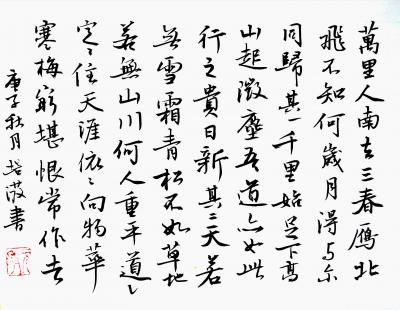 萬里人南去三春雁北
飛不知何歲月得与尔
同歸其一千里始足下高
山起微塵吾道亦如此
行之貴日新其二天若
無雪霜青松不如草地
若無山川何人重平道
定〻住天涯依〻向物華
寒梅㝡堪恨常作去
庚子秋月培書